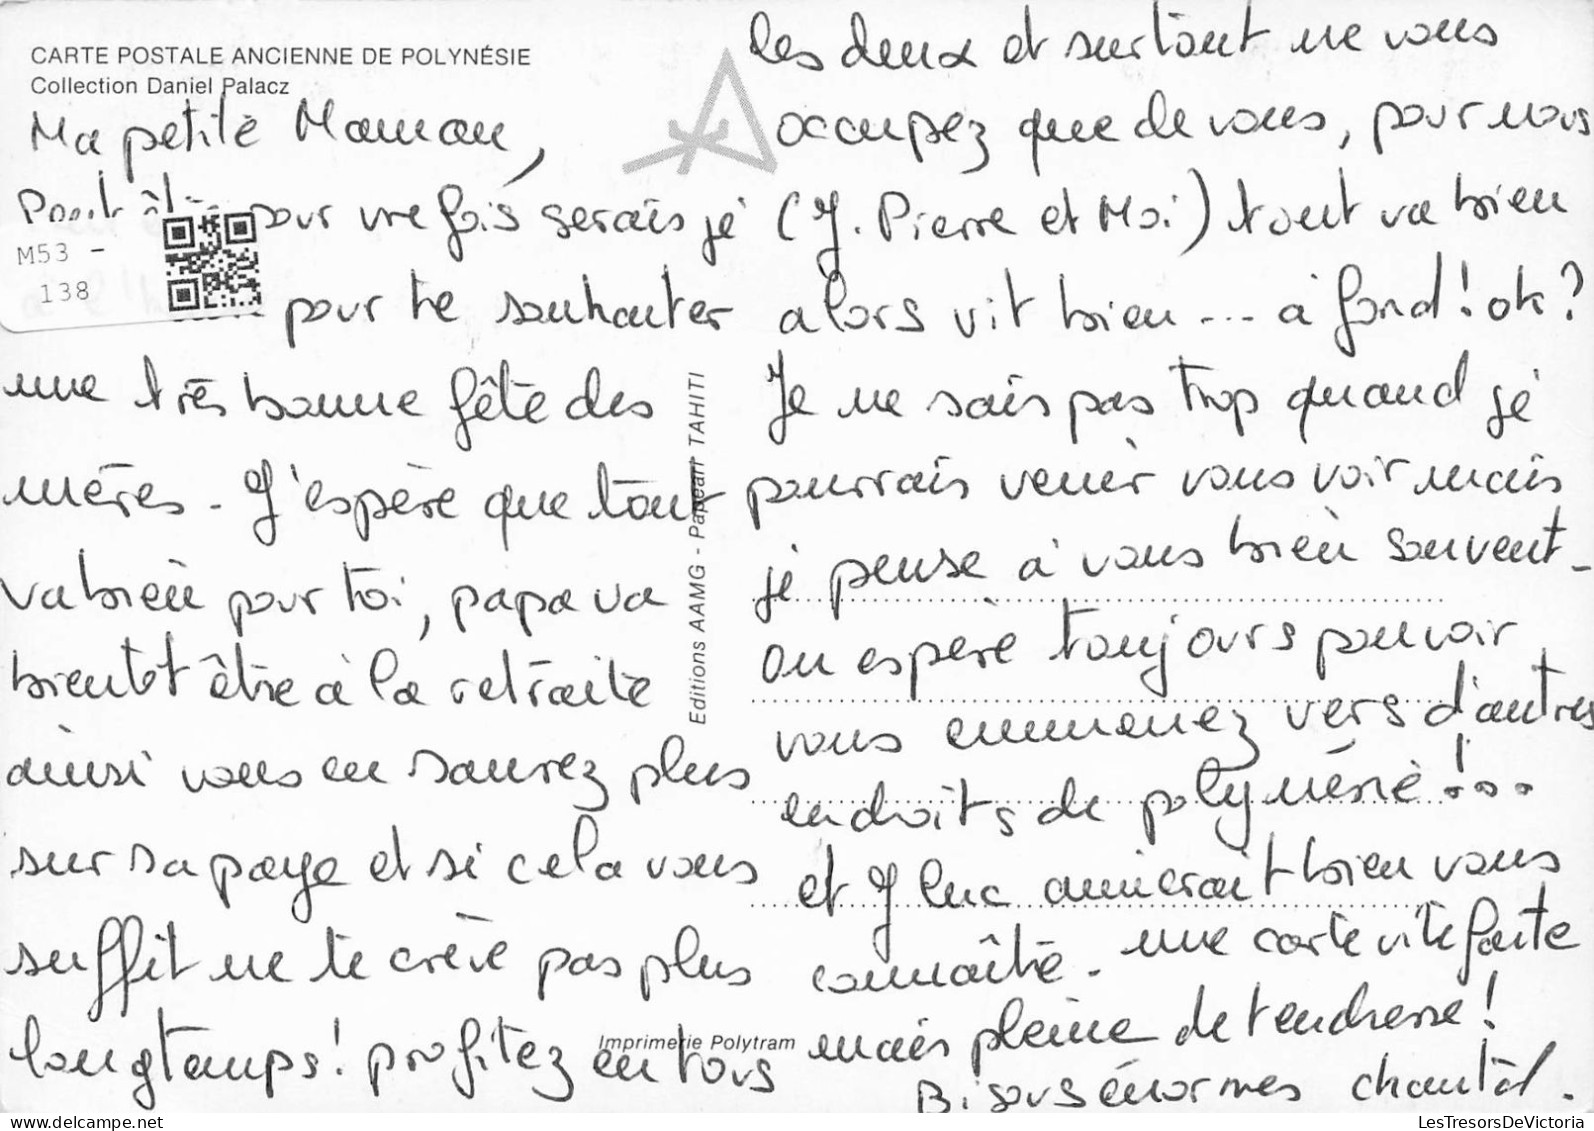 CARTE POSTALE ANCIENNE DE POLYNÉSIE
Collection Daniel Palacz
Ma petite Maman,
Peut être pour une fois serais je
M53 -
138
pour te souhaiter
une très bonne fête des
mères - J'espère que tout
va bien pour toi, papa va
bientot être à la retraite
ainsi vous en saurez plus
sur sa paye et si cela vous
suffit ne te crève pas plus
longtemps! profitez en tous
les deux et surtout ne vous
occupez que de vous, pour nous
(J. Pierre et Moi) tout va bien
alors vit bien --- à fond! ok?
Je ne sais pas trop quand je
pourrais venir vous voir mais
je pense à vous bien souvent -
on espère toujours pouvoir
vous emmenez vers d'autres
endroits de polynésie!...
et J Luc aimerait bien vous
connaître - une carte vite faite
mais pleine de tendresse!
Bisous énormes chantal.
Editions AAMG - Papeari TAHITI
Imprimerie Polytram
LesTresorsDeVictoria